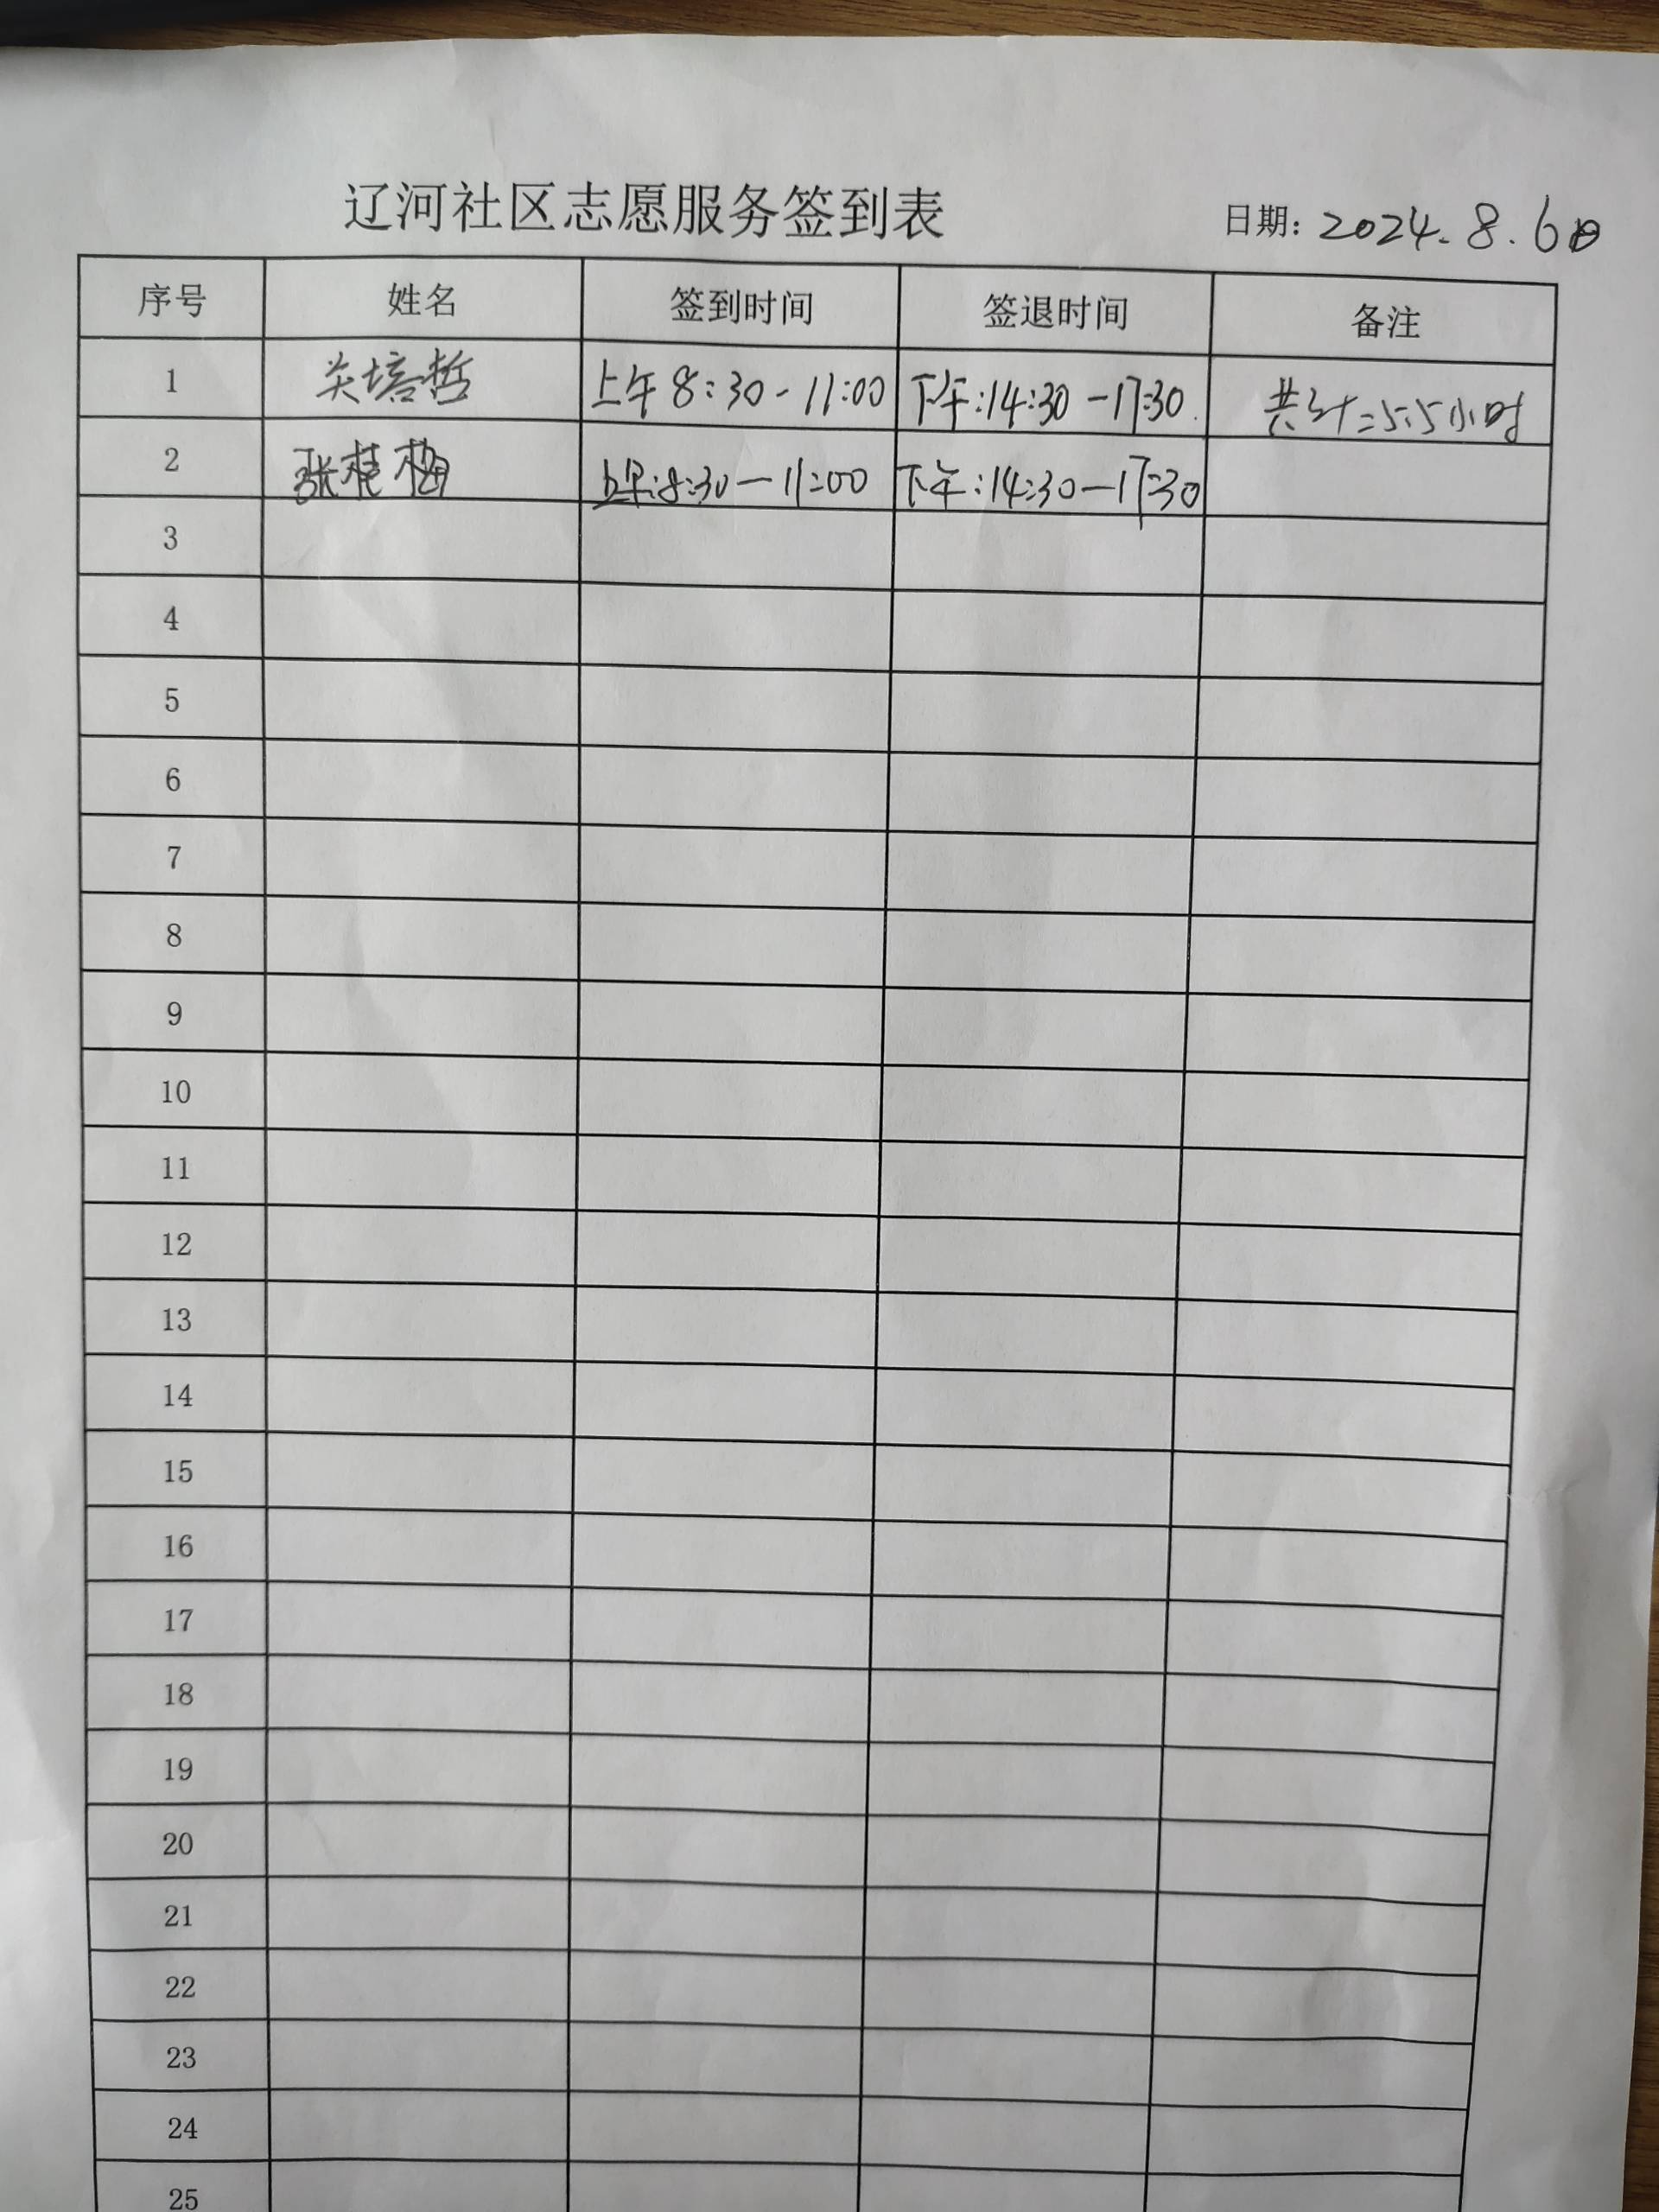 辽河社区志愿服务签到表
日期: 2024.8.6日
序号 姓名 签到时间 签退时间 备注
1 关培哲 上午8:30-11:00 下午:14:30-17:30. 共计=5.5小时
2 张桂梅 上午:8:30-11:00 下午:14:30-17:30
3
4
5
6
7
8
9
10
11
12
13
14
15
16
17
18
19
20
21
22
23
24
25